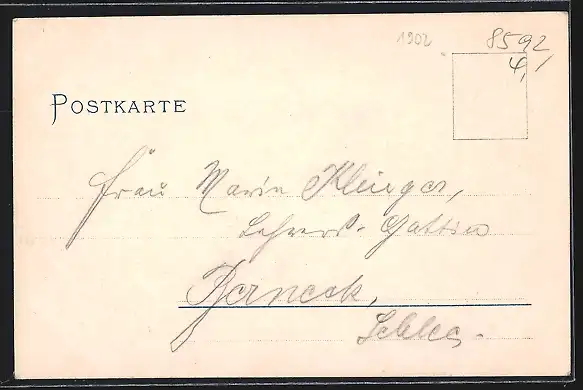 1902
8592
4,
POSTKARTE
Frau Marie Klinger,
Lehrers-Gattin
Berneck,